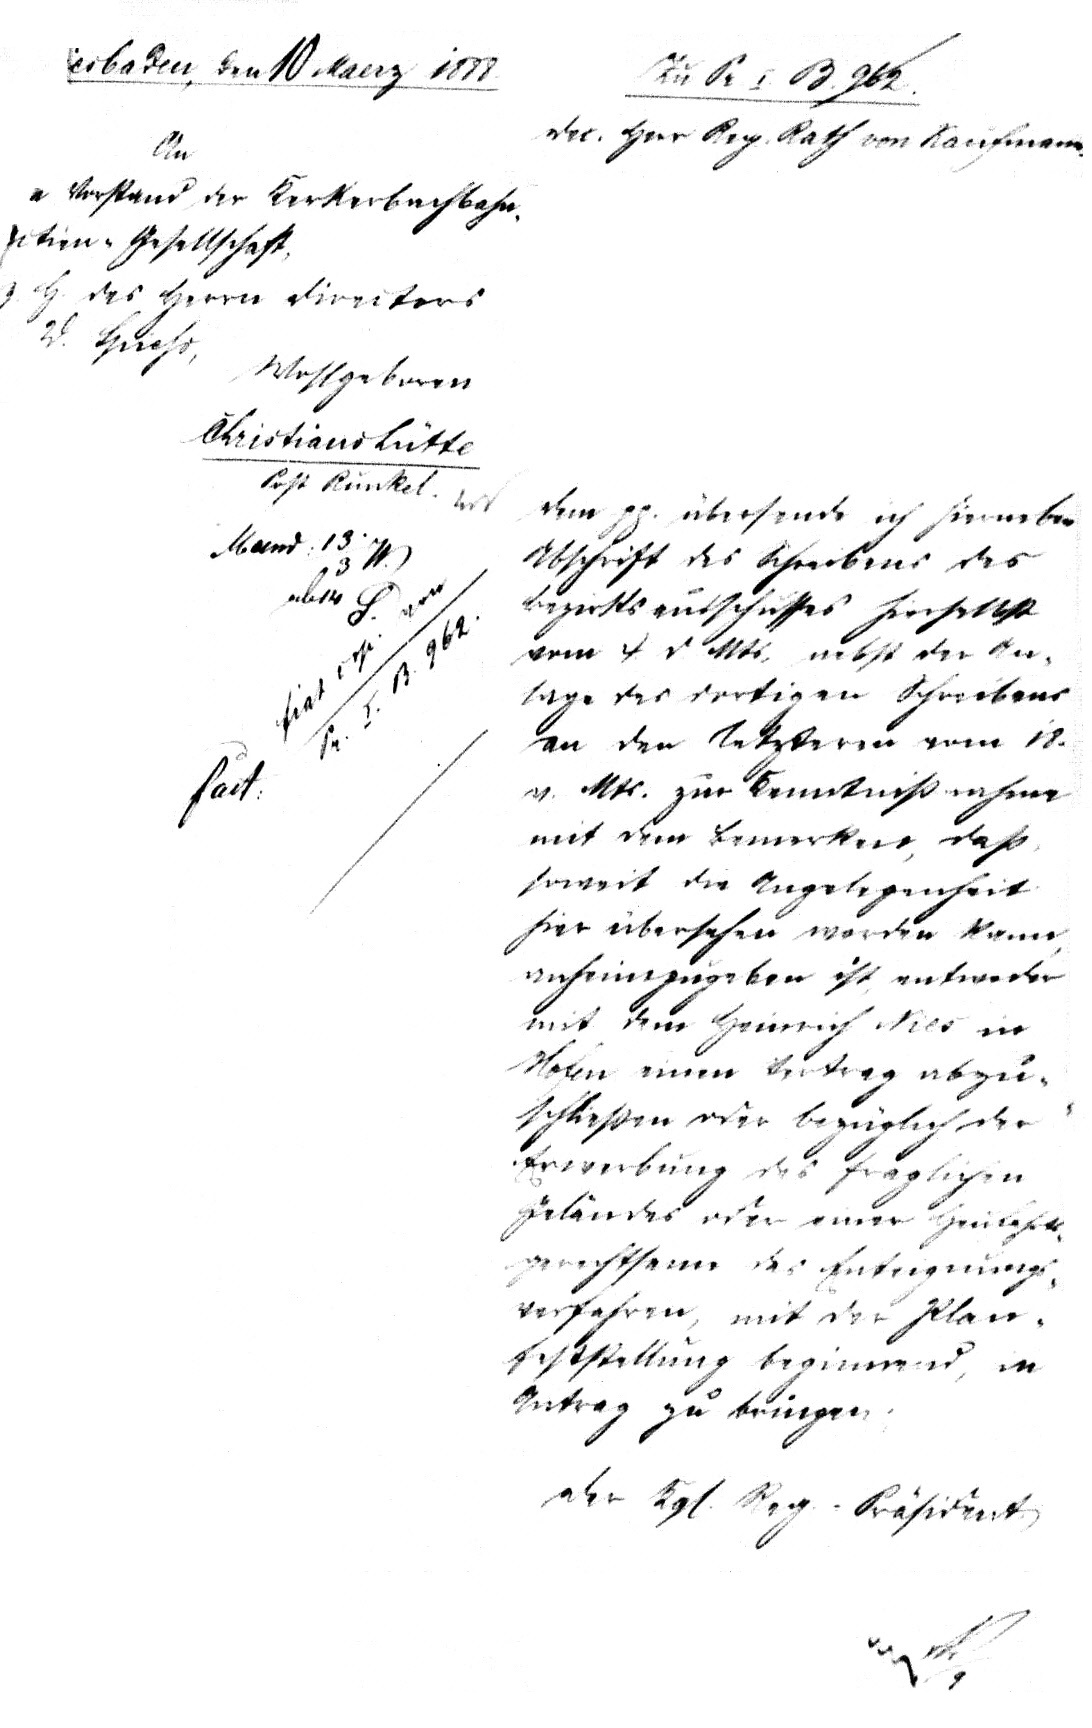 iesbaden, den 10 Maerz 1888
Zu Pr. I. B. 962.
dec. Herr Reg. Rath von Kaufmann.
An
n Vorstand der Kerkerbachbahn-
Actien-Gesellschaft,
z. H. des Herrn Directors
W. Spiess,
Wohlgeboren
Christianshütte
Post Runkel.
Mand: 13.
3
ab 14
fiat von
Pr. I. B. 962.
fact.
dem pp. übersende ich hierneben
Abschrift des Schreibens des
Bezirksausschusses hierselbst
vom 4 d Mts. nebst der An-
lage des dortigen Schreibens
an den letzteren vom 18.
v. Mts. zur Kenntnißnahme
mit dem Bemerken, daß,
soweit die Angelegenheit
hier übersehen werden kann,
anheimzugeben ist, entweder
mit dem Heinrich Nies in
Hofen einen Vertrag abzu-
schließen oder bezüglich der
Erwerbung des fraglichen
Geländes oder einer
gerechtsame das Enteignungs-
verfahren, mit der Plan-
feststellung beginnend, in
Antrag zu bringen.
Der Kgl. Reg.-Präsident
9